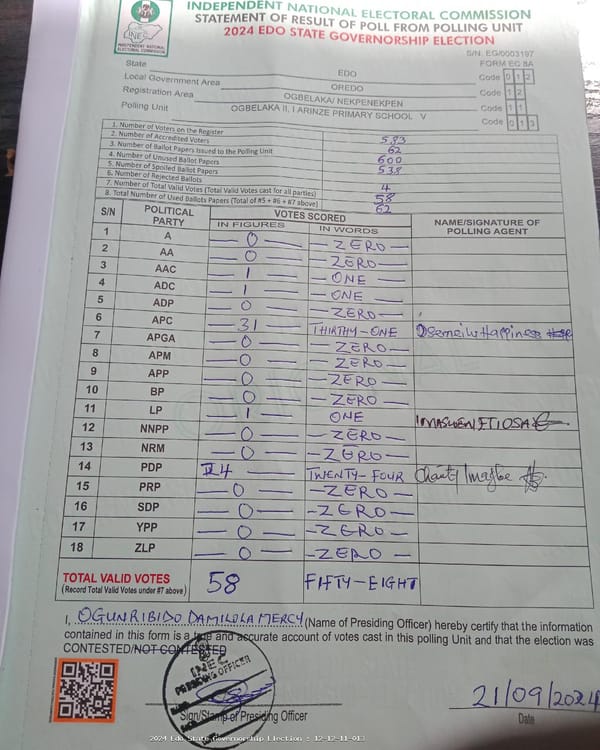 INDEPENDENT NATIONAL ELECTORAL COMMISSION
STATEMENT OF RESULT OF POLL FROM POLLING UNIT
2024 EDO STATE GOVERNORSHIP ELECTION
INEC
INDEPENDENT NATIONAL ELECTORAL COMMISSION
S/N: EG/0003197
FORM EC 8A
State EDO Code 0 1 2
Local Government Area OREDO Code 1 2
Registration Area OGBELAKA/ NEKPENEKPEN Code 1 1
Polling Unit OGBELAKA II, I ARINZE PRIMARY SCHOOL V Code 0 1 3
1. Number of Voters on the Register 583
2. Number of Accredited Voters 62
3. Number of Ballot Papers Issued to the Polling Unit 600
4. Number of Unused Ballot Papers 538
5. Number of Spoiled Ballot Papers
6. Number of Rejected Ballots 4
7. Number of Total Valid Votes (Total Valid Votes cast for all parties) 58
8. Total Number of Used Ballots Papers (Total of #5 + #6 + #7 above) 62
S/N POLITICAL PARTY VOTES SCORED NAME/SIGNATURE OF POLLING AGENT
IN FIGURES IN WORDS
1 A 0 ZERO
2 AA 0 ZERO
3 AAC 1 ONE
4 ADC 1 ONE
5 ADP 0 ZERO
6 APC 31 THIRTHY-ONE Happiness
7 APGA 0 ZERO
8 APM 0 ZERO
9 APP 0 ZERO
10 BP 0 ZERO
11 LP 1 ONE
12 NNPP 0 ZERO
13 NRM 0 ZERO
14 PDP 24 TWENTY-FOUR
15 PRP 0 ZERO
16 SDP 0 ZERO
17 YPP 0 ZERO
18 ZLP 0 ZERO
TOTAL VALID VOTES 58 FIFTY-EIGHT
(Record Total Valid Votes under #7 above)
I, OGUNRIBIDO DAMILOLA MERCY (Name of Presiding Officer) hereby certify that the information
contained in this form is a true and accurate account of votes cast in this polling Unit and that the election was
CONTESTED/NOT CONTESTED
INEC
PRESIDING OFFICER
Sign/Stamp of Presiding Officer
21/09/2024
Date
2024 Edo State Governorship Election : 12-12-11-013